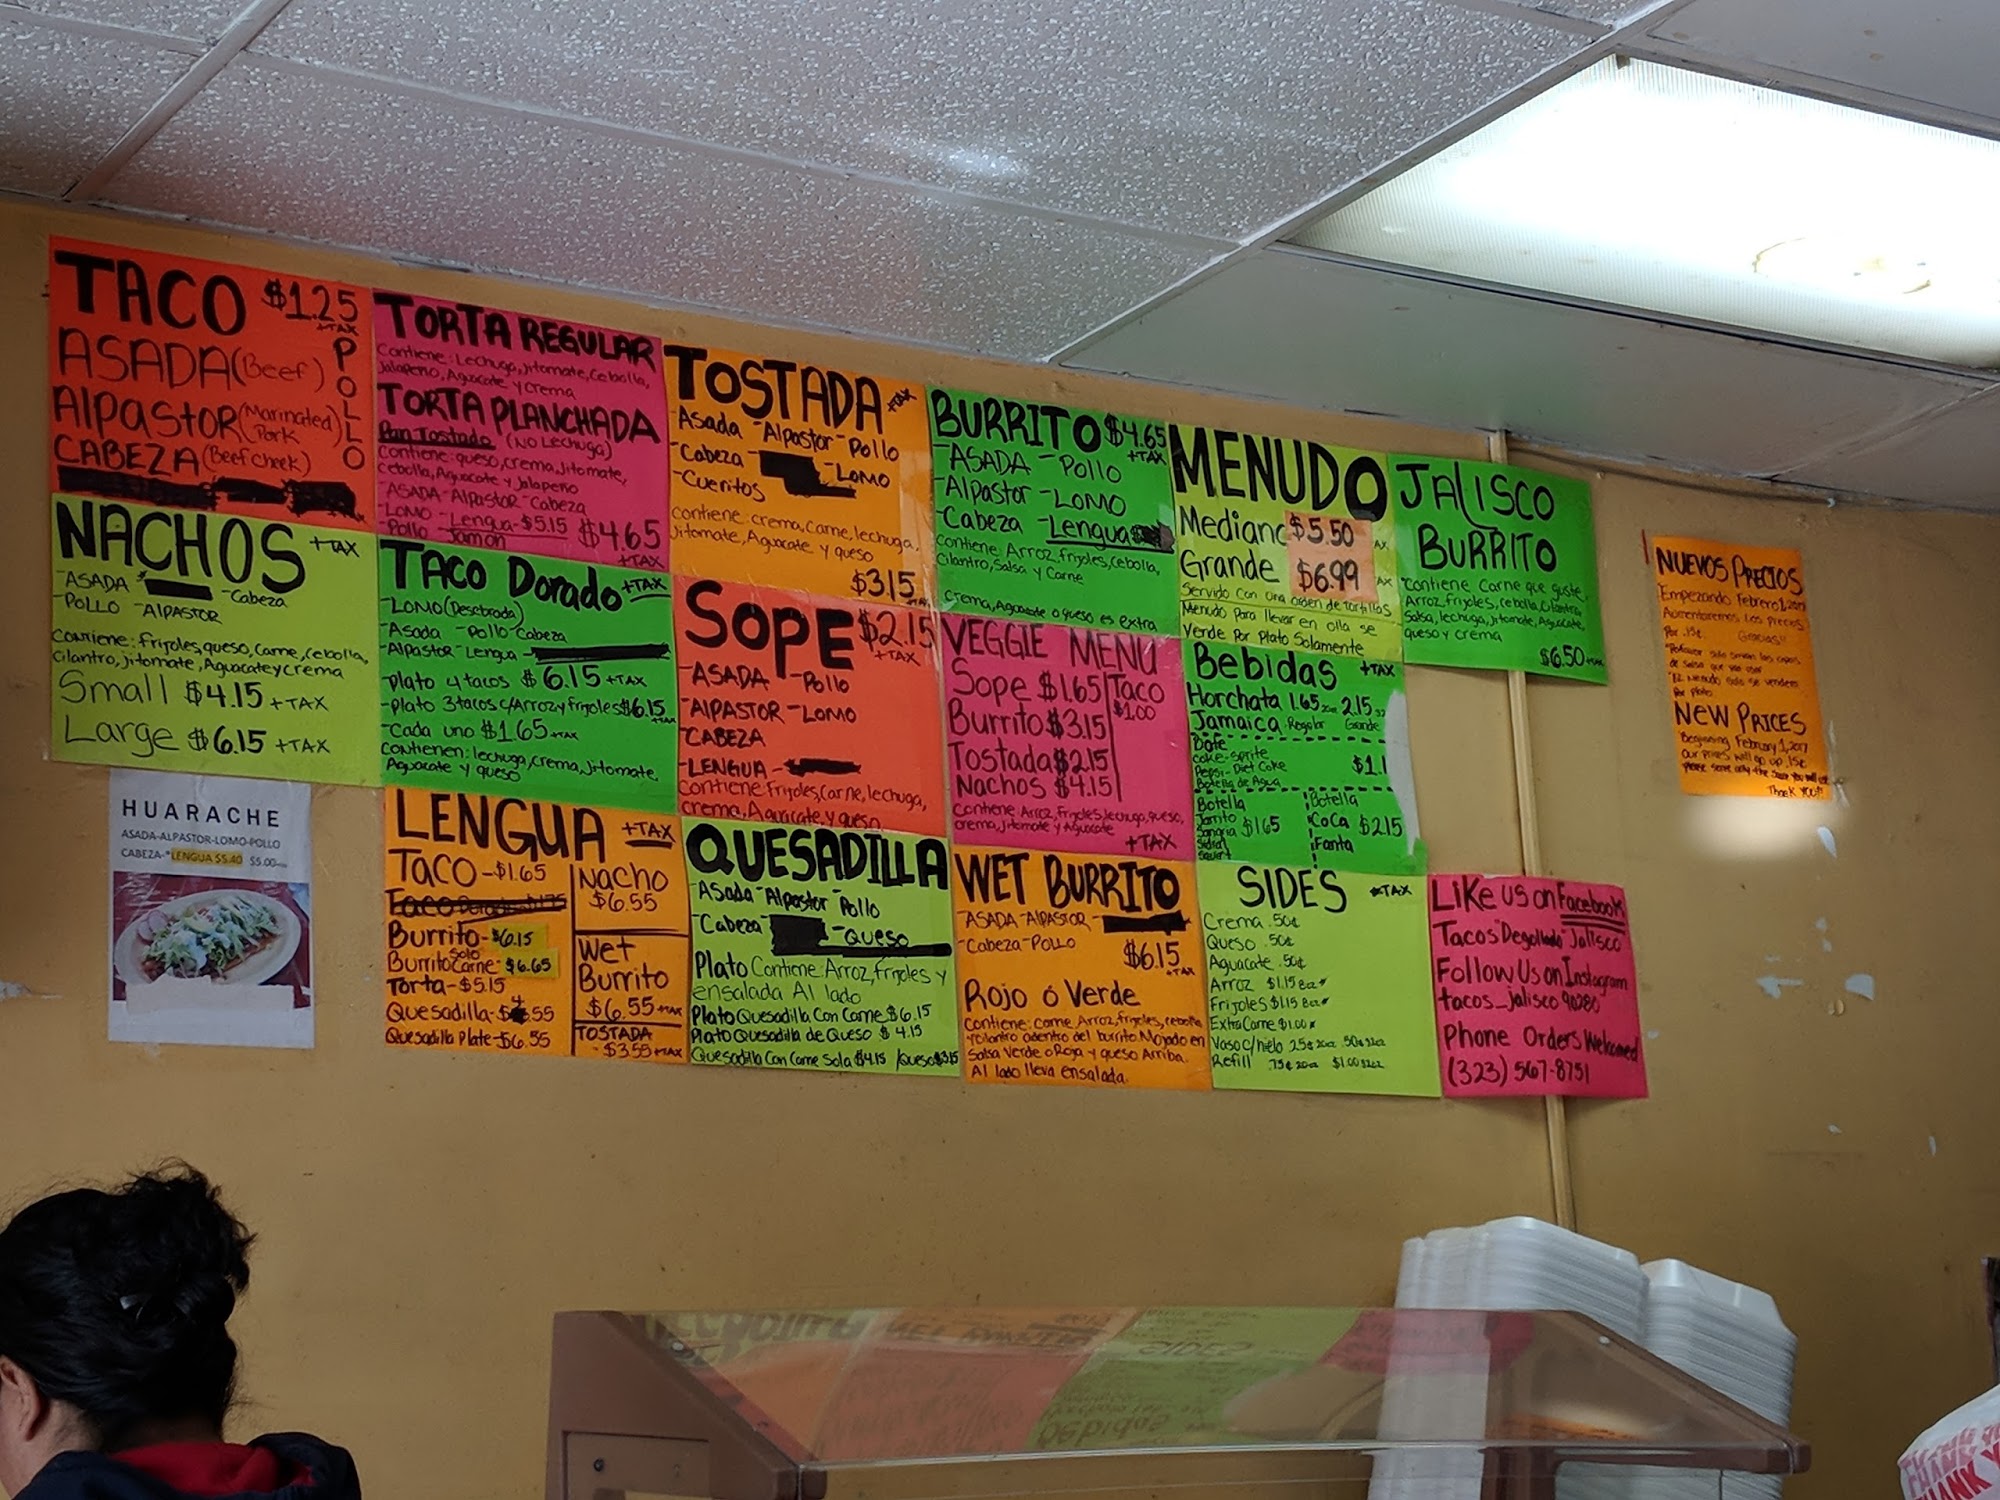 TACO $1.25
+TAX
ASADA (Beef)
AlPastor (Marinated Pork)
CABEZA (Beef cheek)
POLLO
NACHOS +TAX
-ASADA -Cabeza
-POLLO -AlPASTOR
Contiene: Frijoles, queso, Carne, cebolla,
Cilantro, jitomate, Aguacate y crema
Small $4.15 +TAX
Large $6.15 +TAX
HUARACHE
ASADA-ALPASTOR-LOMO-POLLO
CABEZA-*LENGUA $5.40 $5.00
TORTA REGULAR
Contiene: Lechuga, jitomate, Cebolla,
Jalapeño, Aguacate y Crema
TORTA PLANCHADA
Pan Tostado (NO Lechuga)
Contiene: queso, crema, jitomate,
cebolla, Aguacate y Jalapeño
-ASADA-Alpastor-Cabeza
-LOMO -Lengua-$5.15 $4.65
-Pollo -Jamon +TAX
TACO Dorado +TAX
-LOMO (Desebrada)
-Asada -Pollo-Cabeza
-Alpastor-Lengua
-Plato 4 tacos $6.15 +TAX
-Plato 3 tacos c/Arroz y frijoles $6.15
-Cada uno $1.65 +TAX
Contienen: lechuga, crema, Jitomate,
Aguacate y queso
LENGUA +TAX
Taco -$1.65
Burrito-$6.15
Burrito solo Carne-$6.65
Torta-$5.15
Quesadilla-$4.55
Quesadilla Plate-$6.55
Nacho
$6.55
Wet
Burrito
$6.55 +TAX
TOSTADA
-$3.55 +TAX
TOSTADA +TAX
-Asada -Alpastor -Pollo
-Cabeza -LOMO
-Cueritos
contiene: crema, Carne, lechuga,
Jitomate, Aguacate y queso
$3.15
SOPE $2.15
+TAX
-ASADA -Pollo
-AlPASTOR -LOMO
-CABEZA
-LENGUA-
Contiene Frijoles, Carne, lechuga,
crema, Aguacate y queso
QUESADILLA
-Asada -Alpastor -Pollo
-Cabeza -Queso
Plato Contiene: Arroz, frijoles y
ensalada Al lado
Plato Quesadilla Con Carne $6.15
Plato Quesadilla de Queso $4.15
Quesadilla Con Carne Sola $4.15 /Queso $3.15
BURRITO $4.65
+TAX
-ASADA -Pollo
-Alpastor -LOMO
-Cabeza -Lengua
Contiene: Arroz, frijoles, cebolla,
Cilantro, Salsa y Carne
Crema, Aguacate o queso es extra
VEGGIE MENU
Sope $1.65
Burrito $3.15
Tostada $2.15
Nachos $4.15
Taco
$1.00
Contiene: Arroz, Frijoles, lechuga, queso,
crema, Jitomate y Aguacate
+TAX
WET BURRITO
-ASADA-AlPASTOR-
-Cabeza-POLLO
$6.15
+TAX
Rojo ó Verde
Contiene: carne, Arroz, frijoles, cebolla
y cilantro adentro del burrito. Mojado en
Salsa Verde o Roja y queso Arriba.
Al lado lleva ensalada.
MENUDO
Mediano $5.50
Grande $6.99
Servido con una orden de tortillas
Menudo Para llevar en olla se
Vende Por Plato Solamente
Bebidas +TAX
Horchata 1.65 2.15
Jamaica Regular Grande
Bote
Coke-Sprite
Pepsi-Diet Coke $1.1
Botella de Agua
Botella
Jarrito
Sangria $1.65
Sidral
Squirt
Botella
Coca $2.15
Fanta
SIDES +TAX
Crema .50¢
Queso .50¢
Aguacate .50¢
Arroz $1.15 8oz
Frijoles $1.15 8oz
Extra Carne $1.00
Vaso c/hielo 25¢ 20oz .50¢ 32oz
Refill .75¢ 20oz $1.00 32oz
JALISCO
BURRITO
*Contiene Carne que guste,
Arroz, frijoles, cebolla, cilantro,
Salsa, lechuga, Jitomate, Aguacate,
queso y crema
$6.50 +TAX
Like us on Facebook
Tacos "Degollado" Jalisco
Follow Us on Instagram
tacos_jalisco 90280
Phone Orders Welcomed
(323) 567-8751
NUEVOS PRECIOS
Empezando Febrero 1, 2017
Aumentaremos los precios
Por .15¢. Gracias!!
*El Menudo solo se vendera
Por plato
NEW PRICES
Beginning February 1, 2017
Our prices will go up .15¢
Thank YOU!!
THANK YOU